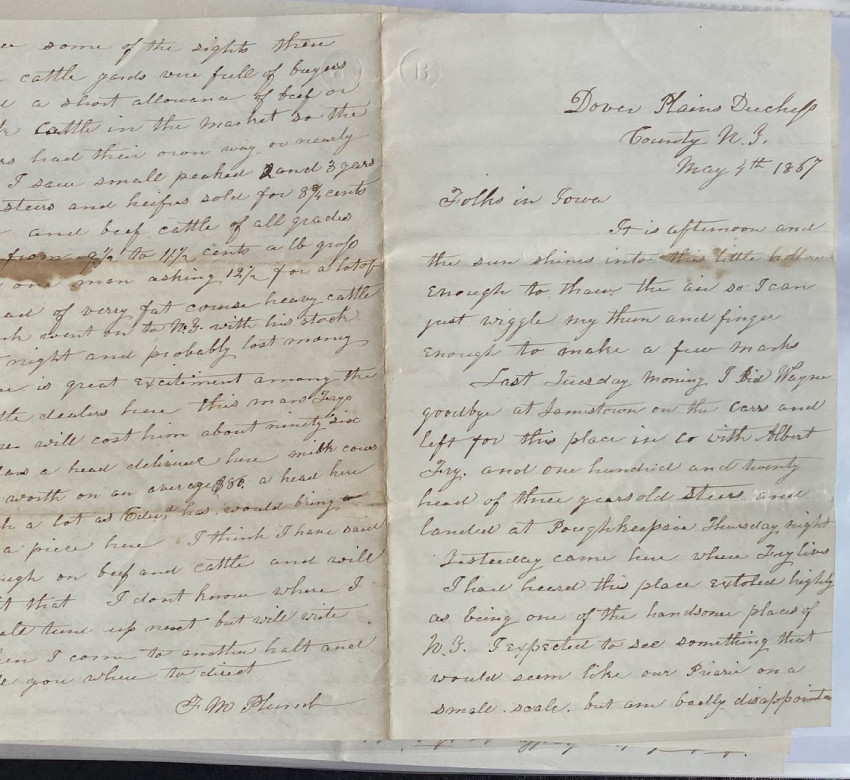 some of the sights there
cattle yards were full of buyers
a short allowance of beef or
cattle in the market so the
had their own way or nearly
I saw small peaked 2 and 3 years
steers and heifers sold for 8¾ cents
and beef cattle of all grades
from 9½ to 11½ cents a lb gross
one man asking 12½ for a lot of
of verry fat course heavy cattle
went on to N.Y. with his stock
night and probably lost money
is great excitiment among the
dealers here this man Frys
will cost him about ninety six
a head delivered here milch cows
worth on an average $80 a head here
a lot as has would bring
a piece here I think I have said
on beef and cattle and will
that I dont know where I
tund up next but will write
I come to another halt and
you where to direct
F. M Plumb
B
Dover Plains Duchess
County N.Y.
May 4th 1867
Folks in Iowa
It is afternoon and
the sun shines into this little hollow
enough to thaw the air so I can
just wiggle my thum and finger
enough to make a few marks
Last Tuesday morning I Bid Wayne
goodbye at Jamestown on the cars and
left for this place in co with Albert
Fry. and one hundred and twenty
head of three years old steers and
landed at Poughkeepsie Thursday night
Yesterday came here where Fry lives
I had heard this place extoled highly
as being one of the handsome places of
N.Y. I expected to see something that
would seem like our Prairie on a
small scale. but am badly disappointed